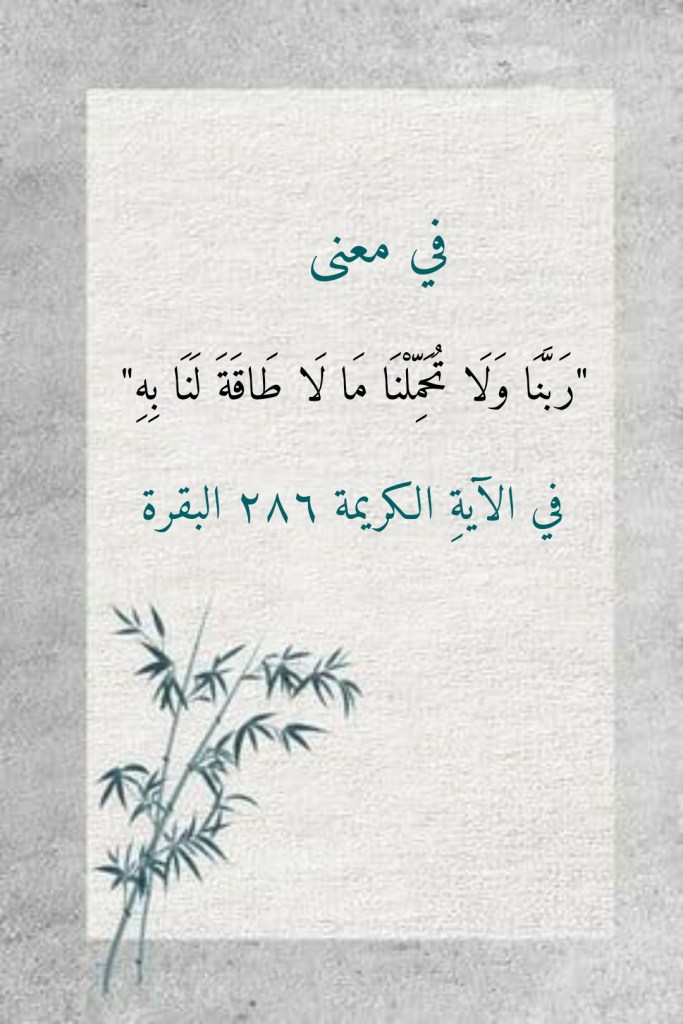 في معنى
"رَبَّنَا وَلَا تُحَمِّلْنَا مَا لَا طَاقَةَ لَنَا بِهِ"
في الآيةِ الكريمة ٢٨٦ البقرة